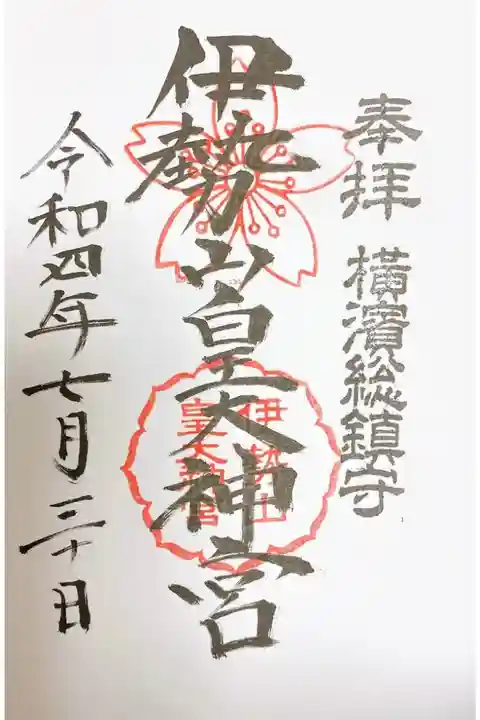 奉拝 横濱総鎮守
伊勢山皇大神宮
伊勢山
皇大神宮
令和四年七月三十日